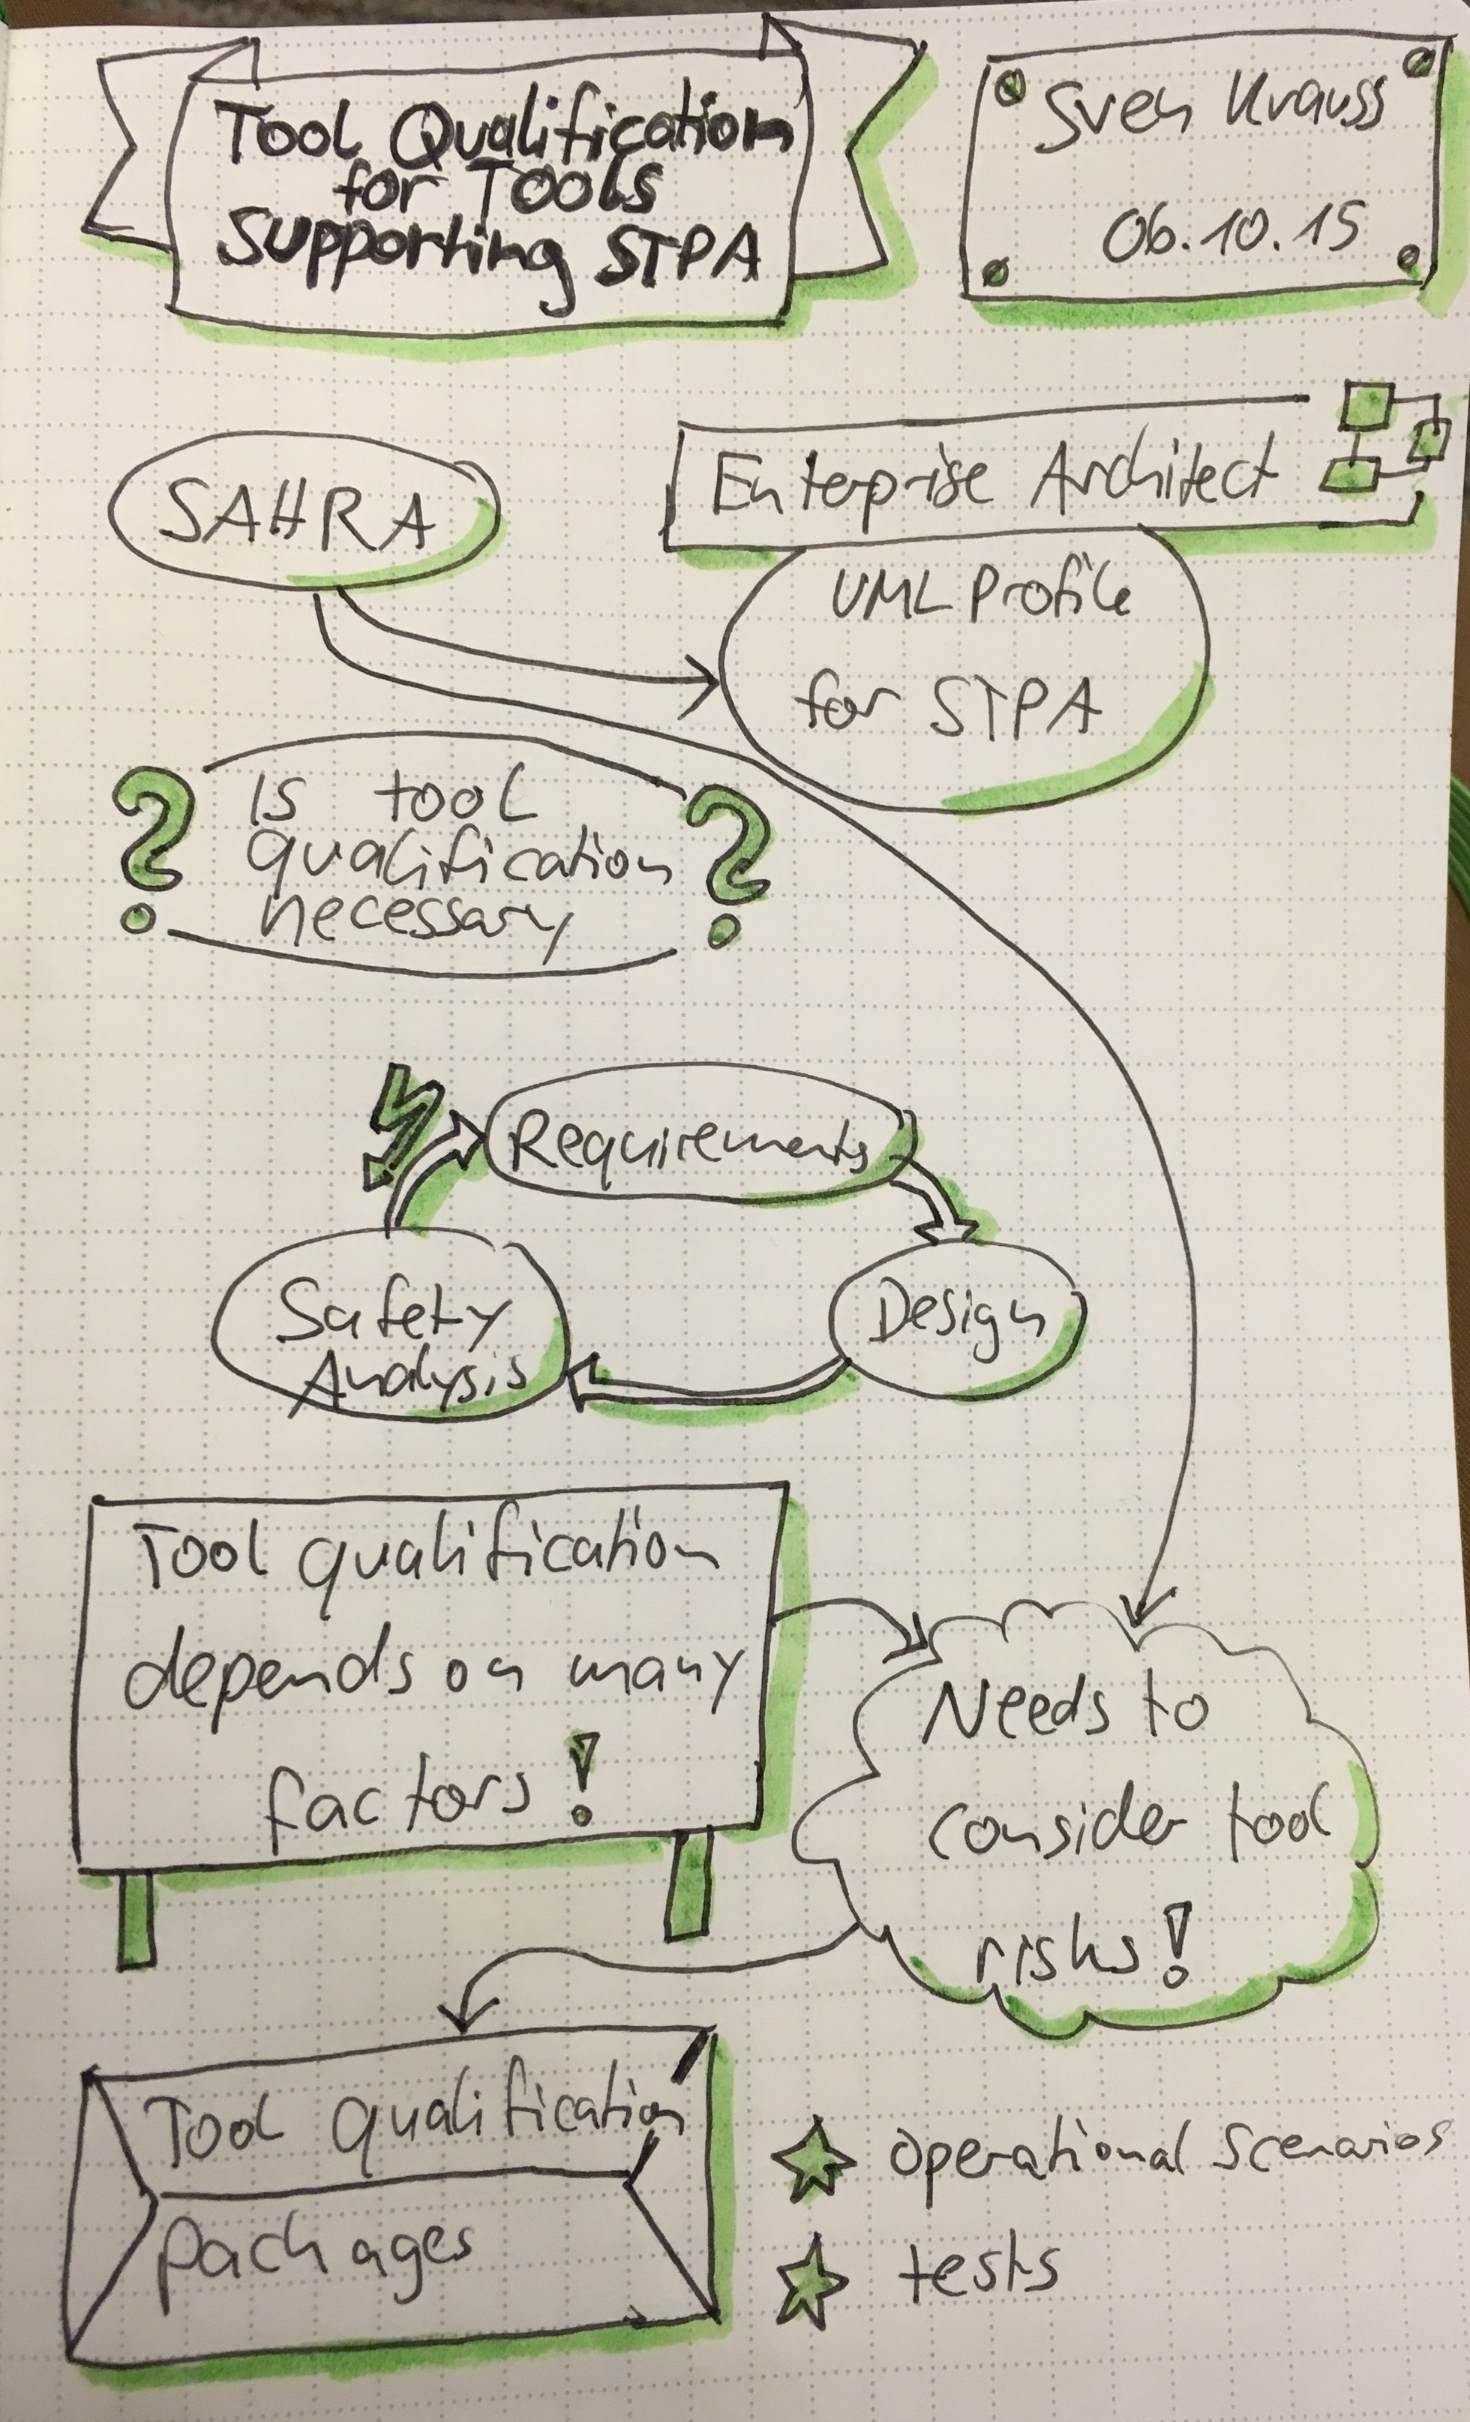 Tool Qualification
for Tools
Supporting STPA
Sven Krauss
06.10.15
SAHRA
Enterprise Architect
UML Profile
for STPA
Is tool
qualification
necessary
Requirements
Safety
Analysis
Design
Tool qualification
depends on many
factors!
Needs to
consider tool
risks!
Tool qualification
packages
operational scenarios
tests